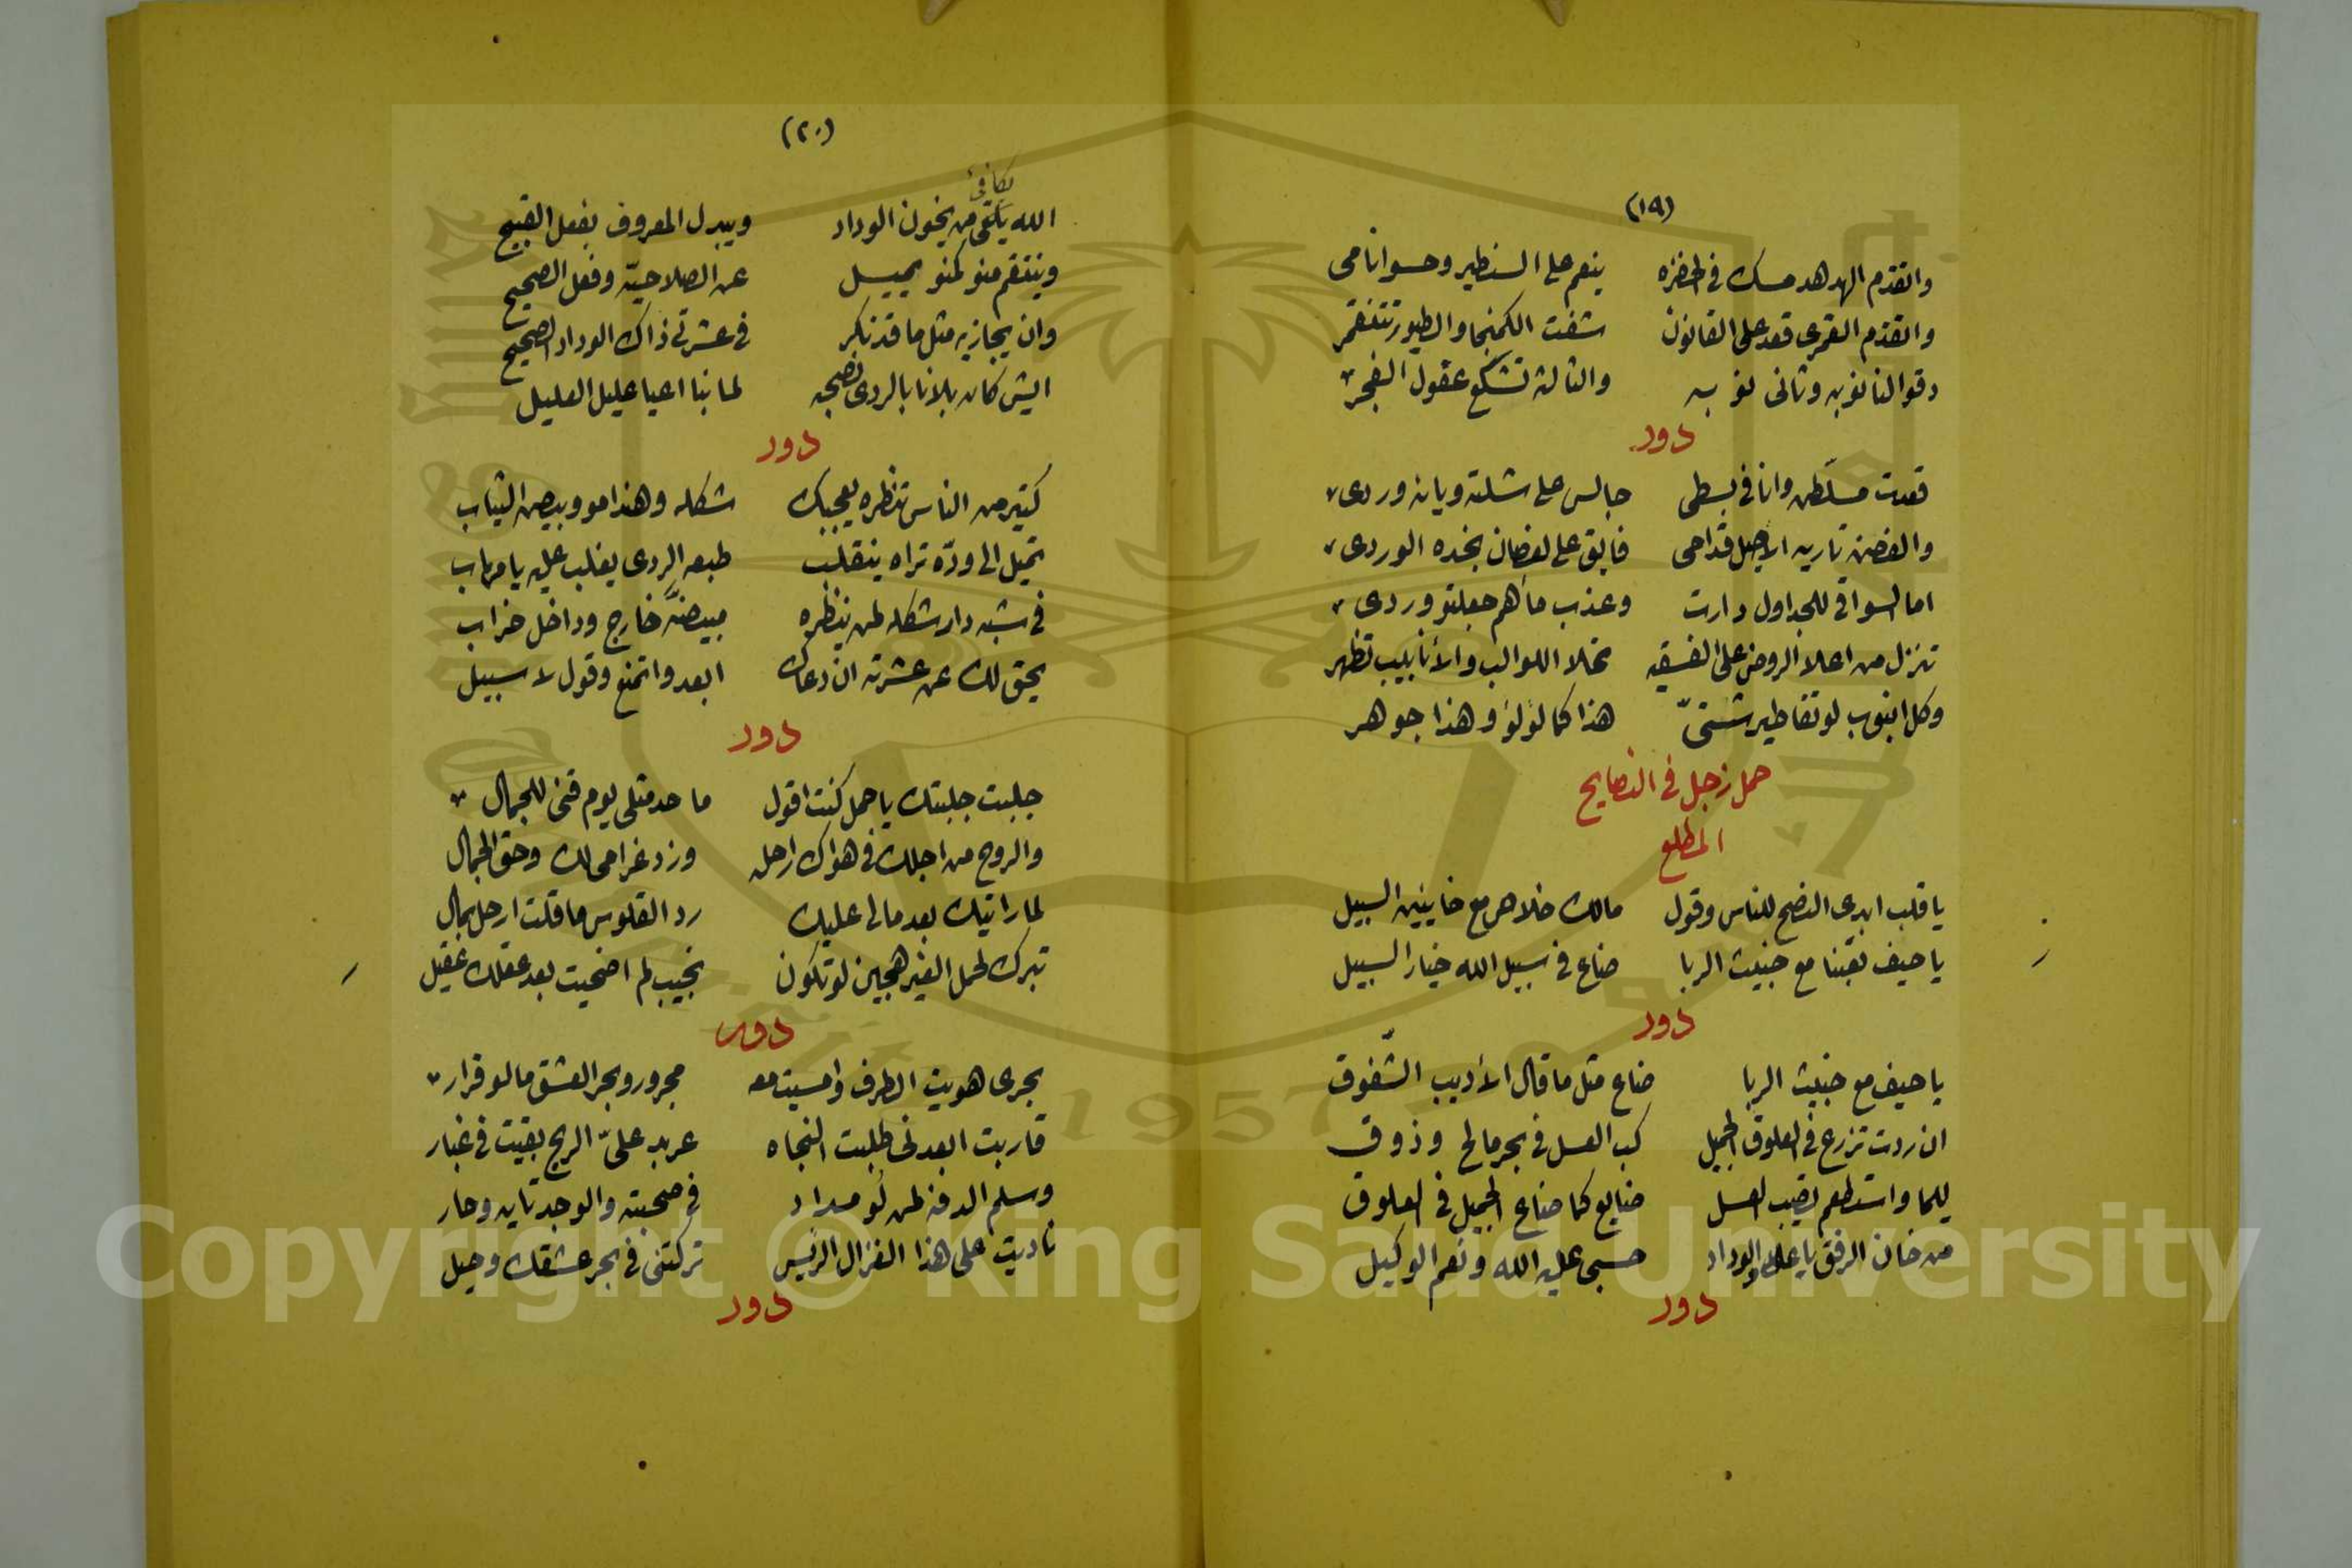 (١٩)
والقدم الهدهد مسك في الحضره ينعم على السنطير وحسو انامى
والقدم القمرى قعد على القانون شفت الكمنجا والطيور تتنقمر
دقوا لنا نوبه وثانى نوبه والثالثه تشكع عقول الفجر
دور
قعدت مسلّطن وانا في بسطى جالس على شلته ويانه وردى
والغصن تاريه الاصيل قدامى فايق على لغصان بخده الوردى
اما السواقى للجداول دارت وعذب ماهم جعلتو وردى
تنزل من اعلا الروض على الفسقيه تملا اللوالب والأنابيب تظهر
وكل انبوب لو تقاطير شتىّ هذا كما لؤلؤ وهذا جوهر
حمل زجل في النصايح
المطلع
يا قلب ابدى النصح للناس وقول مالك خلاص مع خاينين السبيل
يا حيف تعبنا مع خبيث الربا ضاع في سبيل الله خيار السبيل
دور
يا حيف مع خبيث الربا ضاع مثل ما قال الأديب الشّفوق
ان ردت تزرع في العلوق الجميل كب العسل في بحر مالح وذوق
للما واستطعم يغيب لعسل ضايع كما ضاع الجميل في العلوق
من خان الرفق يا على والوداد حسبى عليه الله ونعم الوكيل
دور
(٢٠)
يكافئ
الله يلقى من يخون الوداد ويبدل المعروف بفعل القبيح
وينتقم منو كمنو يميل عن الصلاحيّه وفعل الصحيح
وان يجازيه مثل ما قد نكر في عشرتى ذاك الوداد الصحيح
ايش كان بلانا بالردى نصحبه لما بنا اعيا عليل العليل
دور
كثير من الناس تنظره يعجبك شكله وهندامو وبيض الثياب
تميل الى ودّه تراه ينقلب طبعه الردى يغلب عليه يا مهاب
في شبه دار شكله لمن ينظره مبيضّه خارج وداخل خراب
يحق لك عن عشرته ان دعاك ابعد واتمنع وقول لا سبيل
دور
جلبت جلبتك يا جمل كنت اقول ما حد مثلى يوم قنى للجمال
والروح من اجلك في هواك ارحل وزد غرامى لك وحق الجمال
لما راتيك بعد مالى عليك رد القلوس ما قلت ارحل بمال
تبرك لحمل الغير هجين لو تكون نجيب لم اضحيت بعد عقلك عقيل
دور
بحرى هويت الطرف وامسيت معه مجرور وبحر العشق مالو قرار
قاربت ابعدنى طلبت النجاه عربد علىّ الريح بقيت في غبار
وسلم الدفه لمن لو مداد في صحبته والوجد تايه وحار
ناديت على هذا الغزال الريس تركتنى في بحر عشقك وحيل
دور
Copyright © King Saud University
1957